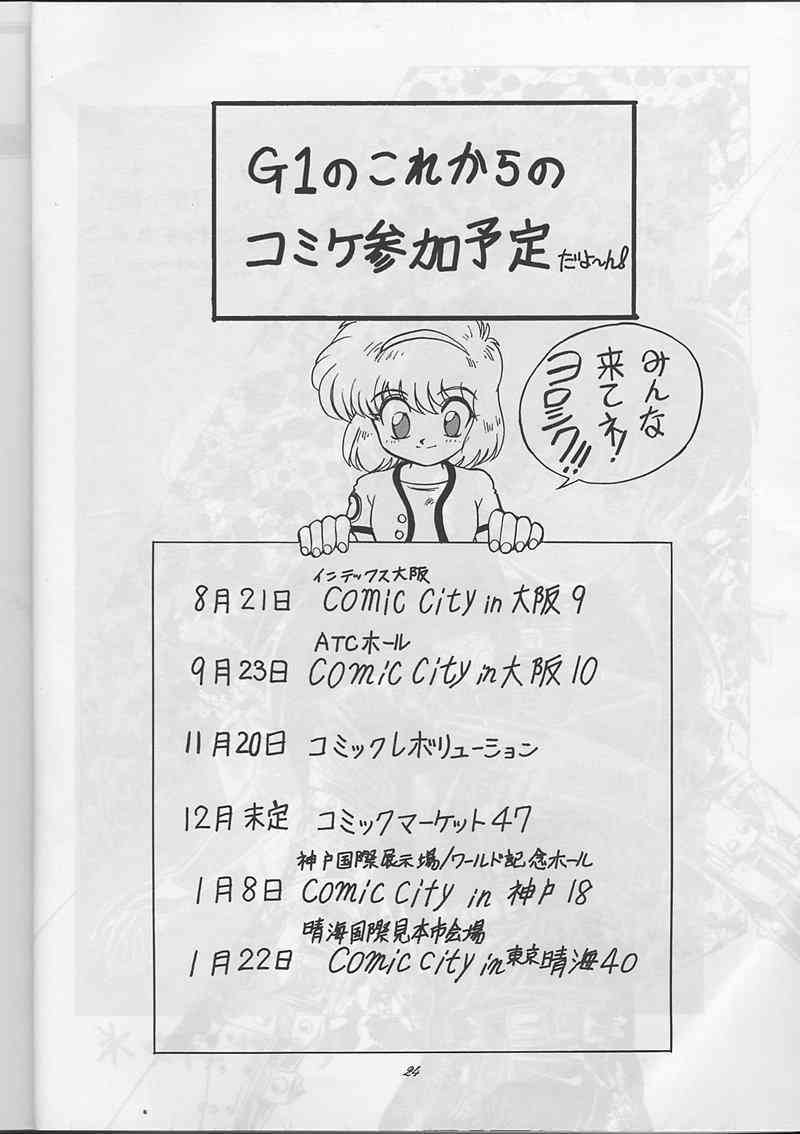 G1のこれからの
コミケ参加予定だよ〜ん!
みんな
来てネ!
ヨロシク!!
インテックス大阪
8月21日 Comic City in 大阪9
ATCホール
9月23日 Comic City in 大阪10
11月20日 コミックレボリューション
12月末定 コミックマーケット47
神戸国際展示場/ワールド記念ホール
1月8日 Comic City in 神戸18
晴海国際見本市会場
1月22日 Comic City in 東京晴海40
24